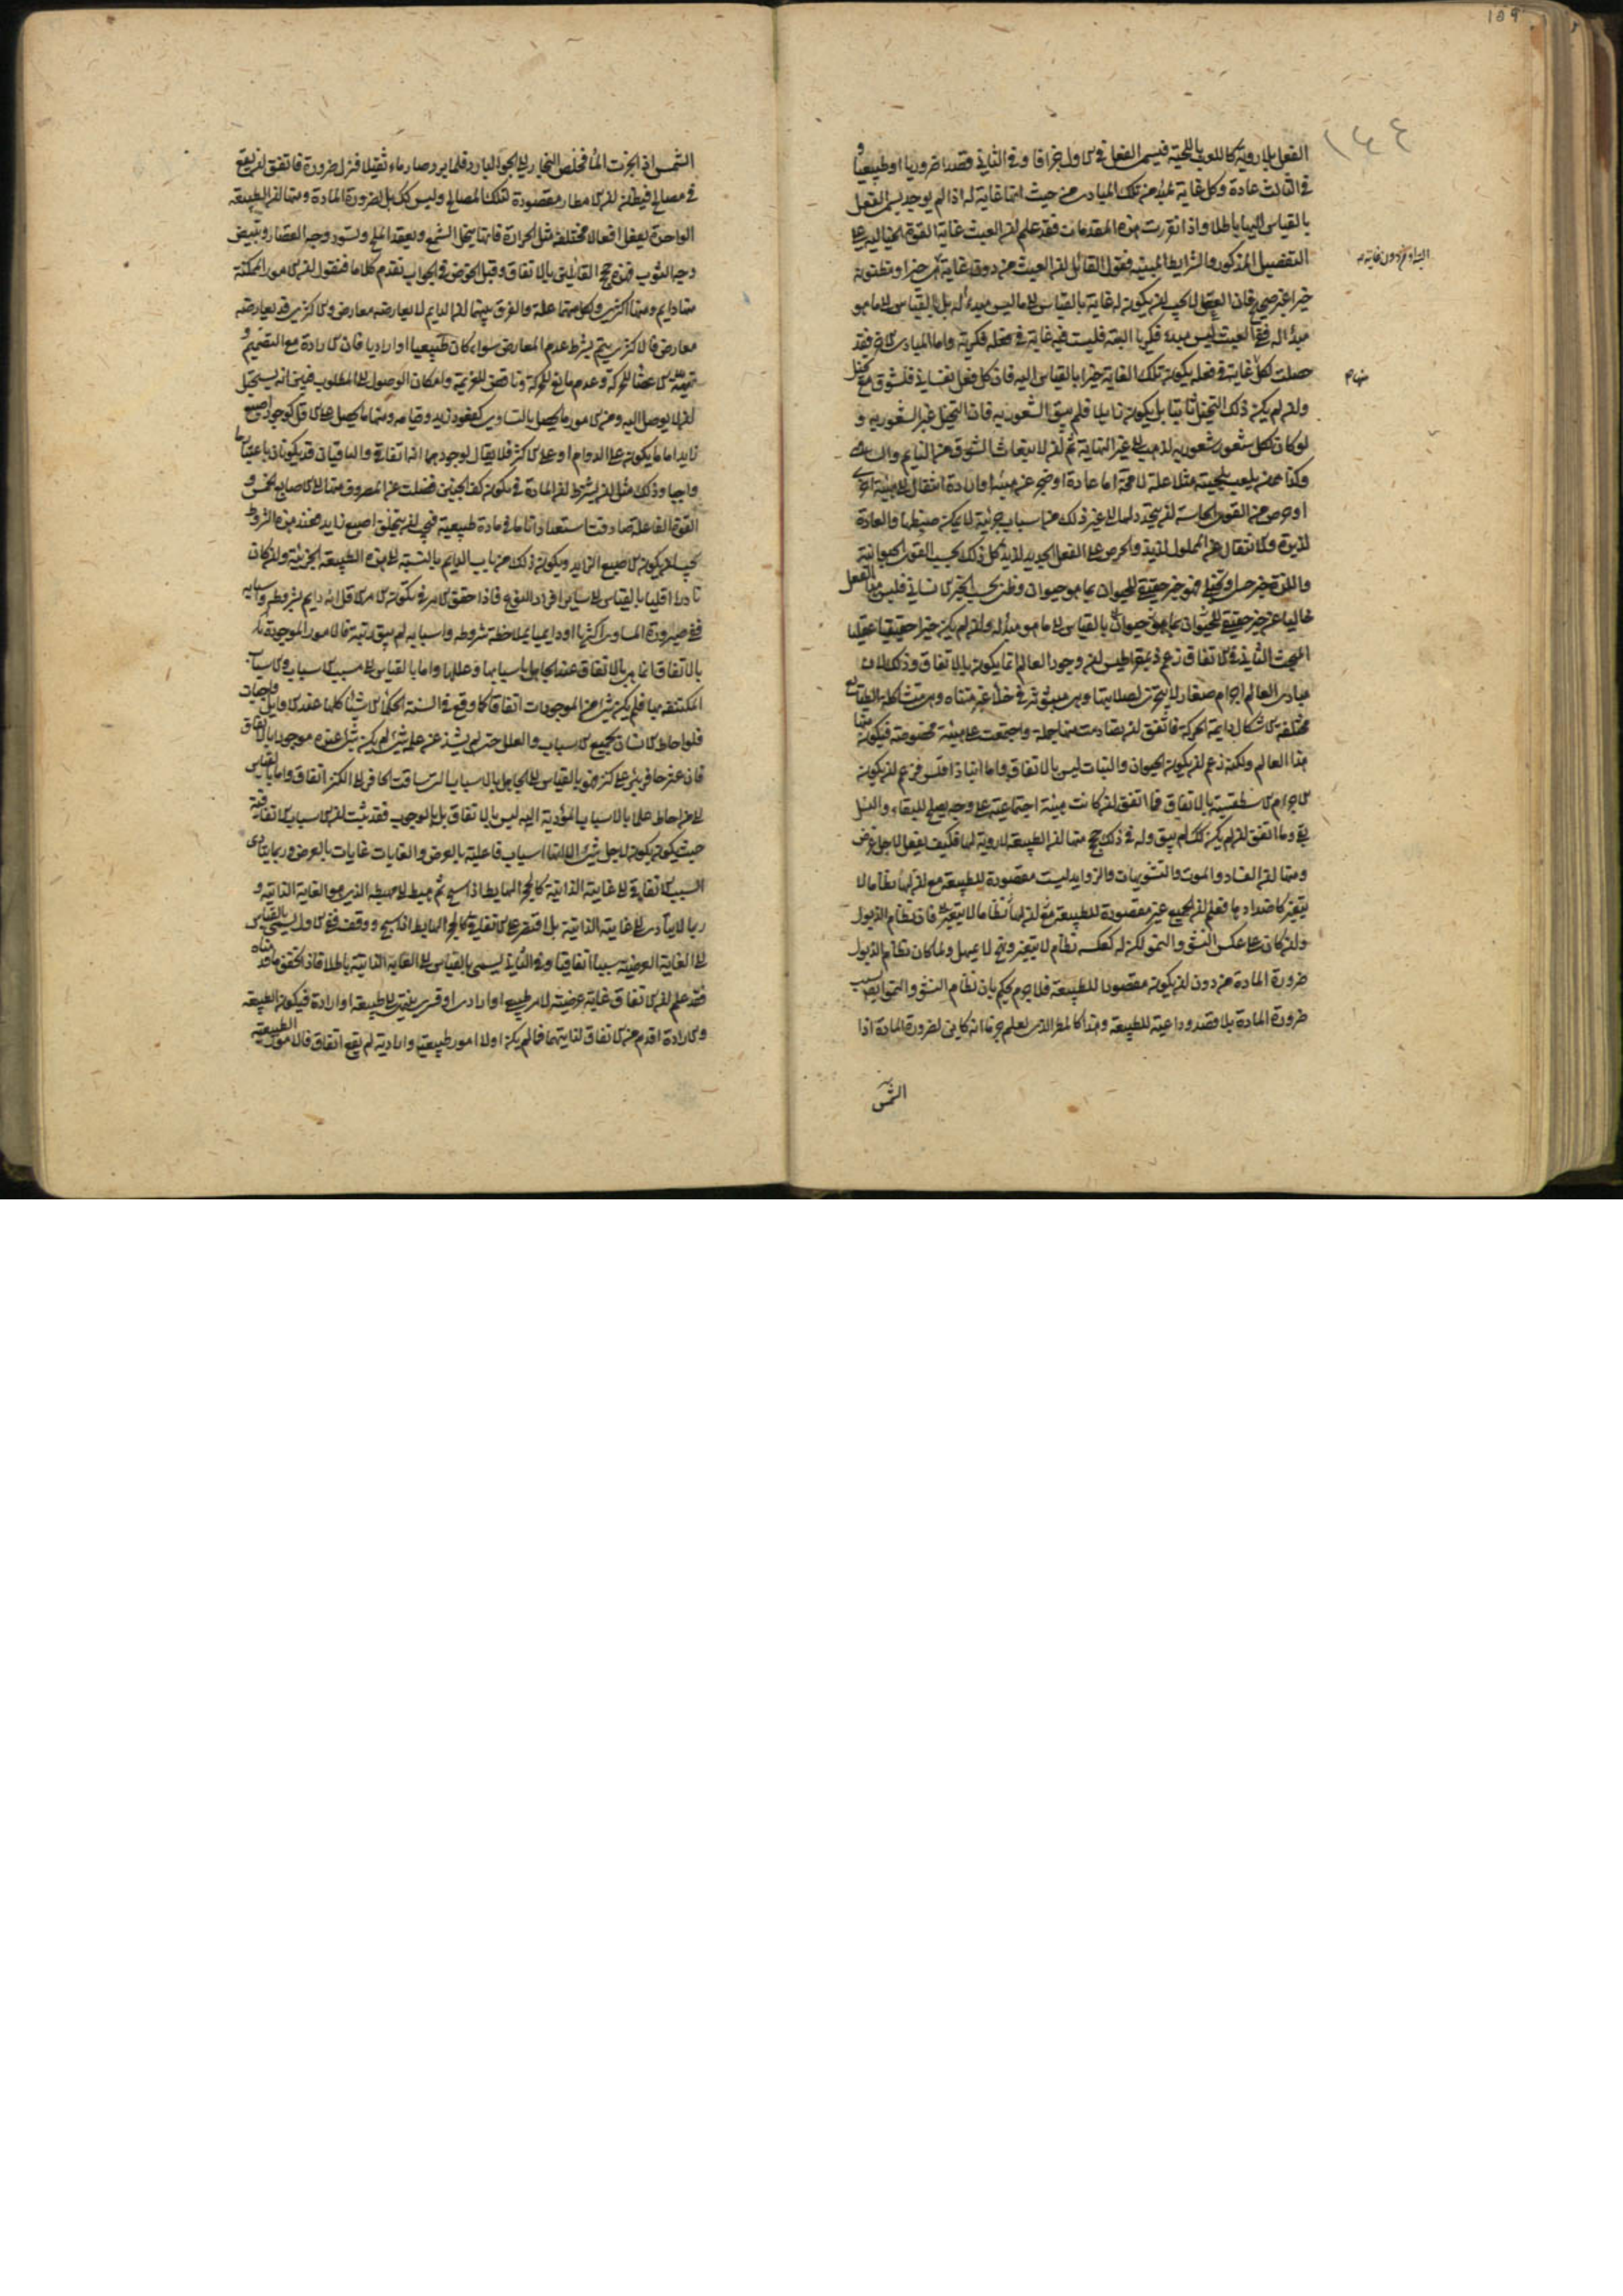 الفعل بلا روية كاللعب باللحية فيسمى الفعل في الاول جزافا وفي الثاني قصدا ضروريا او طبيعيا و
في الثالث عادة وكل غاية لمبدء من تلك المبادى من حيث انها غاية له اذا لم يوجد يسمى الفعل
بالقياس اليها باطلا واذا تقررت هذه المقدمات فقد علم ان العبث غاية القوة الخيالية على
التفصيل المذكور والشرايط المبينة فقول القائل ان العبث من دون غاية هى خير او مظنونة
خيرا غير صحيح فان الفعل انما يجب ان يكون له غاية بالقياس الى ما ليس مبدء له بل بالقياس الى ما هو
مبدء له ففى العبث ليس مبدء فكريا البتة فليست فيه غاية فكرية واما المبادى الاخر فقد
حصلت لكل غاية في فعله يكون تلك الغاية خيرا بالقياس اليه فان كل فعل نفسانى فلشوق مع تخيل
وان لم يكن ذلك التخيل ثابتا بل يكون زايلا فلم يبق الشعور به فان التخيل غير الشعور به و
لو كان لكل شعور شعور به لذهب الى غير النهاية ثم ان لانبعاث الشوق من النايم والساهى
وكذا ممن يلعب بلحيته مثلا علة لا محة اما عادة او ضجر عن هيئة او ارادة انتقال الى هيئة اخرى
او حرص من القوى الحاسة ان يتجدد لها الى غير ذلك من اسباب جزئية لا يمكن ضبطها والعادة
لذيذة والانتقال عن المملول لذيذ والحرص على الفعل الجديد لذيذ كل ذلك بحسب القوى الحيوانية
واللذة خير حسى وتخيلى فهو خير حقيقة للحيوان بما هو حيوان وظنى بحسب الخير الانسانى فليس هذا الفعل
خاليا عن خير حقيقة للحيوان بما هو حيوان بالقياس الى ما هو مبدء له وان لم يكن خيرا حقيقيا عقليا
المبحث الثانى في الاتفاق زعم ذيمقراطيس ان وجود العالم انما يكون بالاتفاق وذلك لان
مبادى العالم اجرام صغار لا يتجزى لصلابتها وهى مبثوثة في خلاء غير متناه وهى متشاكلة الطبايع
مختلفة الاشكال دايمة الحركة فاتفق ان تصادمت منها جملة واجتمعت على هيئة مخصوصة فيكون منها
هذا العالم ولكنه زعم ان يكون الحيوان والنبات ليس بالاتفاق واما انباذاقلس فزعم ان يكون
الاجرام الاسطقسية بالاتفاق فما اتفق ان كانت هيئة اجتماعية على وجه يصلح للبقاء والنسل
بقى وما اتفق ان لم يكن كك لم يبق وله في ذلك حجج منها ان الطبيعة لا روية لها فكيف يفعل لاجل غرض
ومنها ان الفساد والموت والتشويهات والزوايد ليست مقصودة للطبيعة مع ان لها نظاما لا
يتغير كاضدادها فعلم ان الجميع غير مقصودة للطبيعة فان نظام الذبول
وان كان على عكس النشو والنمو لكن له كعكسه نظام لا يتغير ونهج لا يمهل ولما كان نظام الذبول
ضرورة المادة من دون ان يكون مقصودا للطبيعة فلا جرم نحكم بان نظام النشو والنمو ايضا بسبب
ضرورة المادة بلا قصد وداعية للطبيعة وهذا كالمطر الذى يعلم جزما انه كاين لضرورة المادة اذا
الشمس
الشمس اذا بخرت الماء فخلص البخار الى الجو البارد فلما برد صار ماء ثقيلا فنزل ضرورة فاتفق ان يقع
في مصالح فيظن ان الامطار مقصودة لتلك المصالح وليس كك بل لضرورة المادة ومنها ان الطبيعة
الواحدة يفعل افعالا مختلفة مثل الحرارة فانها يحل الشمع ويعقد الملح ويسود وجه القصار ويبيض
وجه الثوب فهذه حجج القائلين بالاتفاق وقبل الخوض في الجواب نقدم كلاما فنقول ان الامور الممكنة
منها دايم ومنها اكثرى ولكل منها علة والفرق بينهما ان الدايم لا يعارضه معارض والاكثرى قد يعارضه
معارض فالاكثرى يتم بشرط عدم المعارض سواء كان طبيعيا او اراديا فان الارادة مع التصميم و
تهيؤ الاعضاء للحركة وعدم مانع للحركة وناقض للعزيمة وامكان الوصول الى المطلوب فبين انه يستحيل
ان لا يوصل اليه ومن الامور ما يحصل بالتساوى كقعود زيد وقيامه ومنها ما يحصل على الاقل كوجود اصبع
زايد اما ما يكون على الدوام او على الاكثر فلا يقال لوجودهما انها اتفاقى والباقيان قد يكونان باعتبار ما
واجبا وذلك مثل ان يشترط ان المادة في تكون كف الجنين فضلت عن المصروف منها الى الاصابع الخمس و
القوة الفاعلة صادفت استعدادا تاما في مادة طبيعية فيجب ان يتخلق اصبع زايد فعند هذه الشروط
يجب ان يكون الاصبع الزايد ويكون ذلك من باب الدايم بالنسبة الى هذه الطبيعة الجزئية وان كان
نادرا اقليا بالقياس الى ساير افراد النوع فاذا حقق الامر في تكون الامر الاقلى انه دايم بشروطه واسبابه
ففى صيرورة المساوى اكثريا او دايميا بملاحظة شروطه واسبابه لم يبق ريبة فالامور الموجودة
بالاتفاق انما هى بالاتفاق عند الجاهل باسبابها وعللها واما بالقياس الى مسبب الاسباب والاسباب
المكتنفة بها فلم يكن شئ من الموجودات اتفاقا كما وقع في السنة الحكماء الاشياء كلها عند الاوايل واجبات
فلو احاط الانسان بجميع الاسباب والعلل حتى لم يشذ عن علمه شئ لم يكن شئ عنده موجودا بالاتفاق
فان عثر حافر بئر على كنز فهو بالقياس الى الجاهل بالاسباب التى ساقت الحافر الى الكنز اتفاق واما بالقياس
الى من احاط علما بالاسباب المؤدية اليه ليس بالاتفاق بل بالوجوب فقد ثبت ان الاسباب الاتفاقية
حيث يكون يكون لاجل شئ الا انها اسباب فاعلية بالعرض والغايات غايات بالعرض وربما يتادى
السبب الاتفاقى الى غايته الذاتية كالحجر الهابط اذا شج ثم هبط الى مهبطه الذى هو الغاية الذاتية و
ربما لا يتادى الى غايته الذاتية بل اقتصر على الاتفاقى كالحجر الهابط اذا شج ووقف ففى الاول يسمى بالقياس
الى الغاية العرضية سببا اتفاقيا وفى الثانى يسمى بالقياس الى الغاية الذاتية باطلا فاذا تحقق ما قدمناه
فقد علم ان الاتفاق غاية عرضية لامر طبيعى او ارادى او قسرى ينتهى الى طبيعة او ارادة فيكون الطبيعة
والارادة اقدم من الاتفاق لذاتيهما فما لم يكن اولا امور طبيعية او ارادية لم يقع اتفاق فالامور الطبيعية